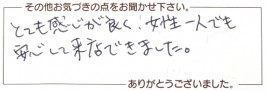 その他お気づきの点をお聞かせ下さい。
とても感じが良く、女性一人でも
安心して来店できました。
ありがとうございました。